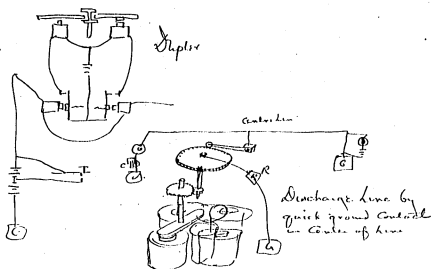 Duplex
Centre Line
G
R
C
G
G
Discharge Line by
quick ground Contact
in Centre of Line